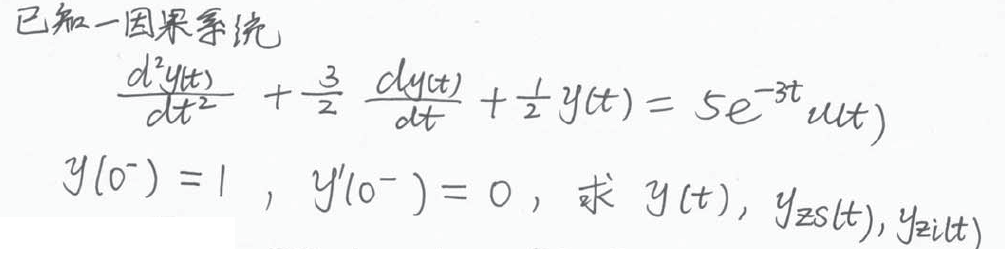 已知一因果系统
d²y(t)/dt² + 3/2 dy(t)/dt + 1/2 y(t) = 5e^{-3t} u(t)
y(0⁻) = 1 , y'(0⁻) = 0 , 求 y(t), y_{zs}(t), y_{zi}(t)